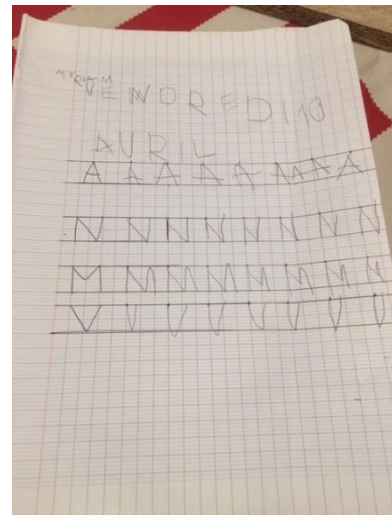 MYRIAM
VENDREDI 10
AVRIL
A A A A A M A A
N N N N N N N N
M M M M M M M M
V V V V V V V V